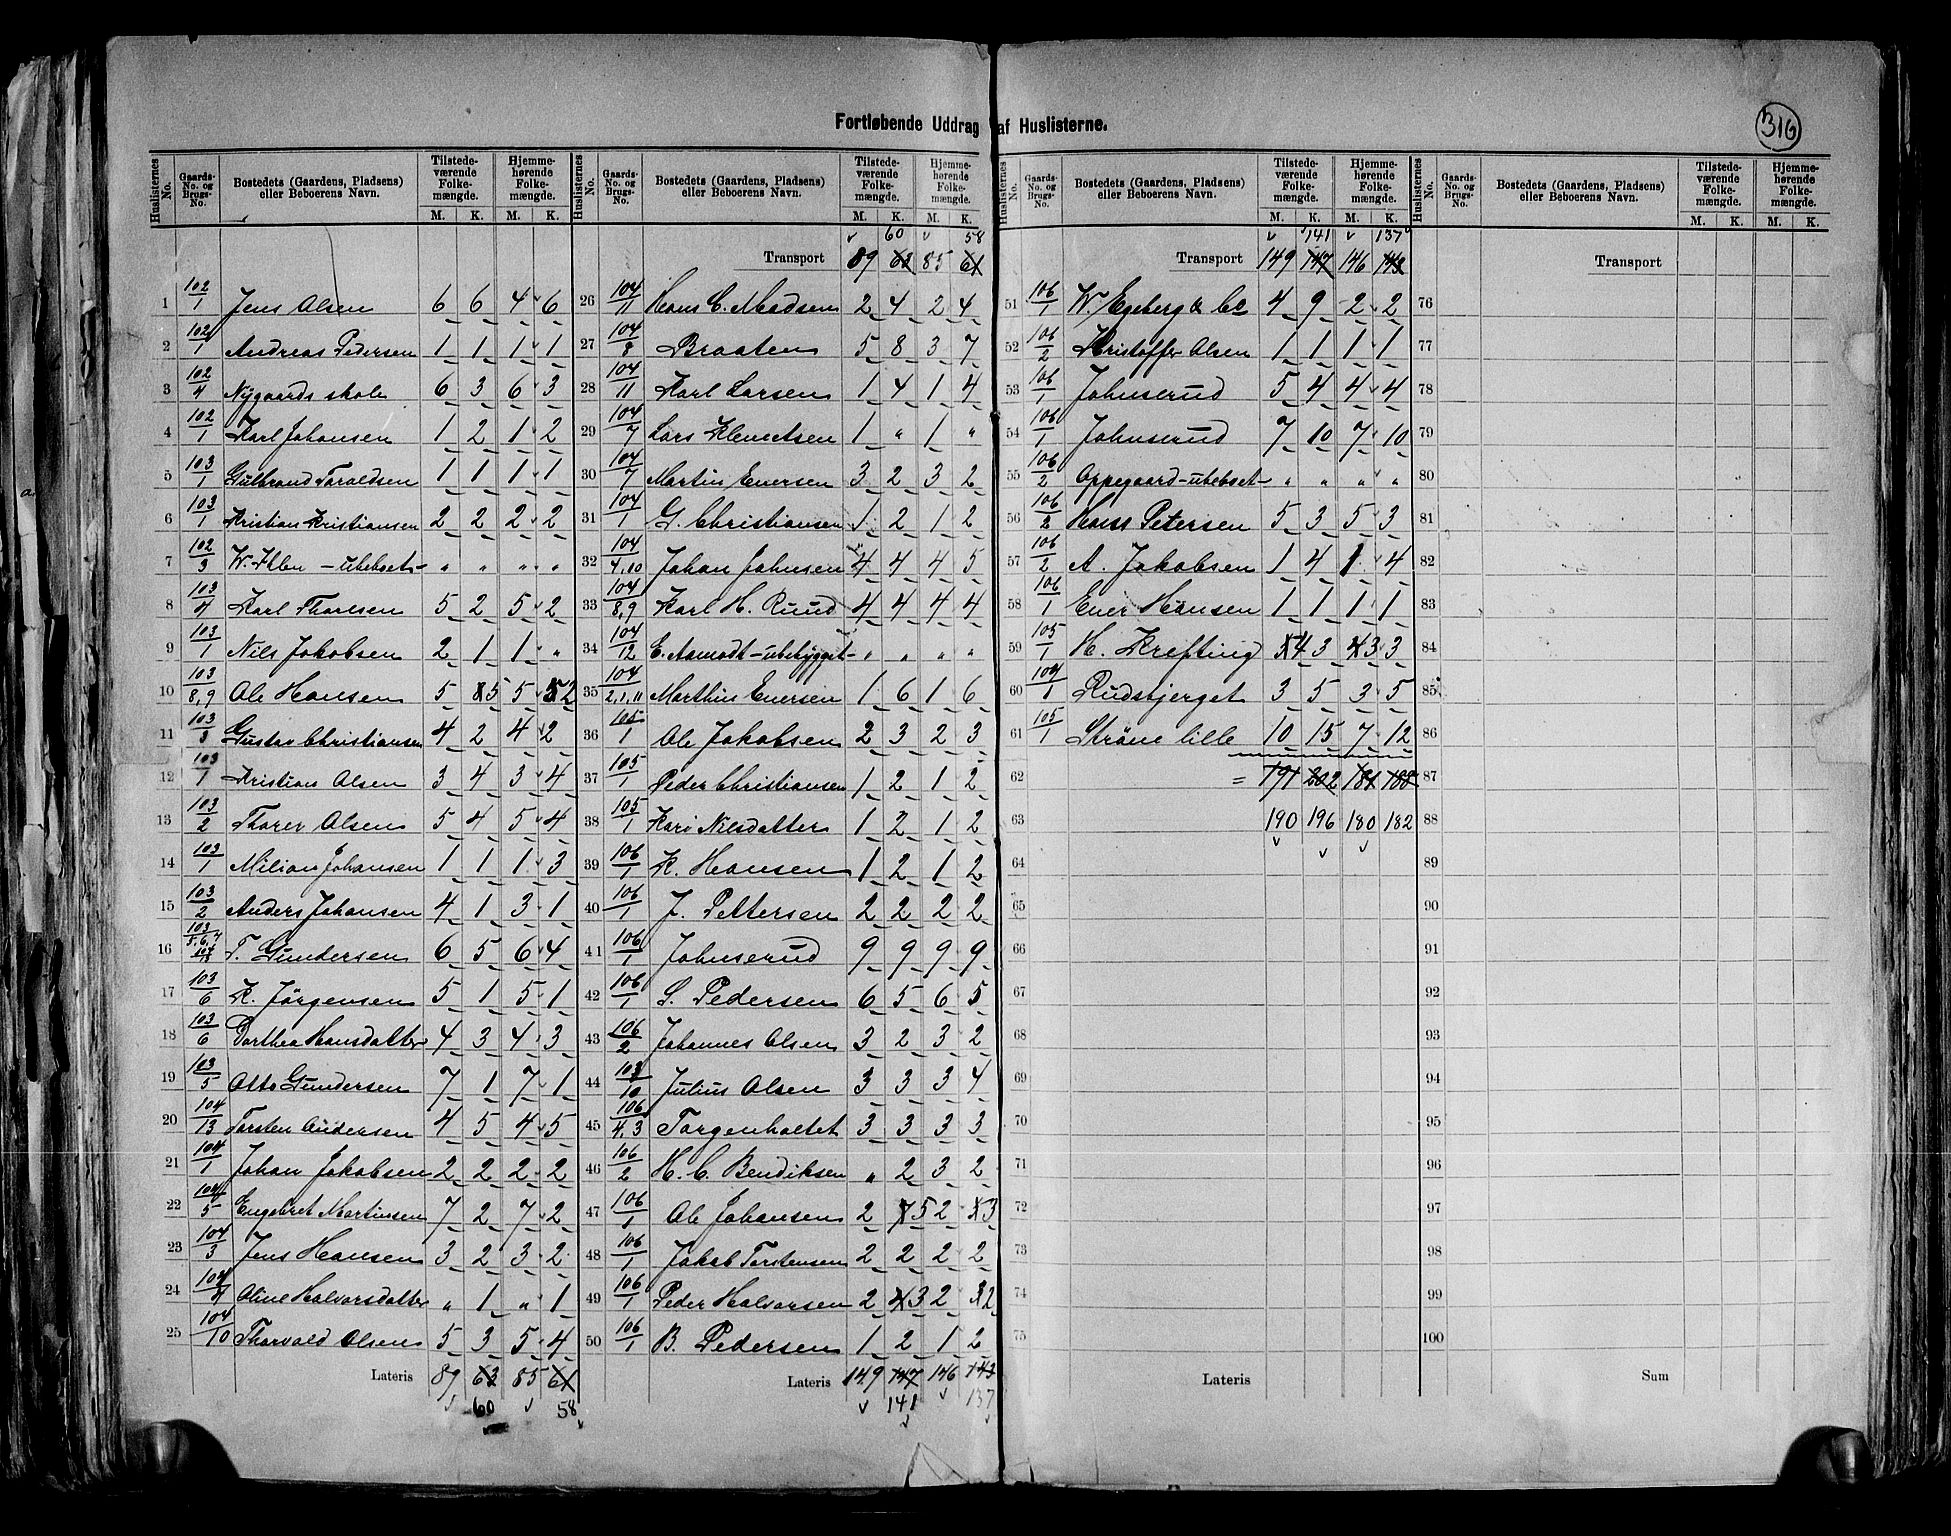 Fortløbende Uddrag af Huslisterne.
316
Huslisternes No. | Gaards-No. og Brugs-No. | Bostedets (Gaardens, Pladsens) eller Beboerens Navn. | Tilstedeværende Folkemængde. M. K. | Hjemmehørende Folkemængde. M. K.
1 102/1 Jens Olsen 6 6 4 6
2 102/1 Andreas Pedersen 1 1 1 1
3 102/4 Nygaards skole 6 3 6 3
4 102/1 Karl Johansen 1 2 1 2
5 103/1 Gulbrand Taraldsen 1 1 1 1
6 103/1 Kristian Kristiansen 2 2 2 2
7 102/3 W. Ihlen - ubeboet - " " " "
8 103/4 Karl Thoresen 5 2 5 2
9 103/1 Nils Jakobsen 2 1 1 "
10 103/8,9 Ole Hansen 5 8 5 5 5 2
11 103/3 Gustav Christiansen 4 2 4 2
12 103/1 Kristian Olsen 3 4 3 4
13 103/2 Thorer Olsen 5 4 5 4
14 103/1 Milian Johansen 1 1 1 3
15 103/2 Anders Johansen 4 1 3 1
16 103/5,6,7 T. Gundersen 6 5 6 4
17 103/6 K. Jørgensen 5 1 5 1
18 103/6 Dorthea Hansdatter 4 3 4 3
19 103/5 Otto Gundersen 7 1 7 1
20 104/13 Torsten Andersen 4 5 4 5
21 104/1 Johan Jakobsen 2 2 2 2
22 104/5 Engebret Martinsen 7 2 7 2
23 104/3 Jens Hansen 3 2 3 2
24 104/4 Oline Halvorsdatter " 1 " 1
25 104/10 Thorvald Olsen 5 3 5 4
Lateris 89 63 85 61
60 58
Huslisternes No. | Gaards-No. og Brugs-No. | Bostedets (Gaardens, Pladsens) eller Beboerens Navn. | Tilstedeværende Folkemængde. M. K. | Hjemmehørende Folkemængde. M. K.
60 58
Transport 89 63 85 61
26 104/11 Hans C. Madsen 2 4 2 4
27 104/8 Braaten 5 8 3 7
28 104/11 Karl Larsen 1 4 1 4
29 104/7 Lars Klemetsen 1 " 1 "
30 104/7 Martin Enersen 3 2 3 2
31 104/1 G. Christiansen 1 2 1 2
32 104/4,10 Johan Johnsen 4 4 4 5
33 104/8,9 Karl H. Ruud 4 4 4 4
34 104/12 E. Aamodt - ubebygget - " " " "
35 104/2,1,11 Marthin Enersen 1 6 1 6
36 105/1 Ole Jakobsen 2 3 2 3
37 105/1 Peder Christiansen 1 2 1 2
38 105/1 Kari Nilsdatter 1 2 1 2
39 106/1 K. Hansen 1 2 1 2
40 106/1 J. Pettersen 2 2 2 2
41 106/1 Johnserud 9 9 9 9
42 106/1 S. Pedersen 6 5 6 5
43 106/2 Johannes Olsen 3 2 3 2
44 103/10 Julius Olsen 3 3 3 4
45 106/4,3 Torgenholtet 3 3 3 3
46 106/2 H. C. Bendiksen " 2 3 2
47 106/1 Ole Johansen 2 5 2 3
48 106/1 Jakob Torstensen 2 2 2 2
49 106/1 Peder Halvorsen 2 4 3 2 2
50 106/1 B. Pedersen 1 2 1 2
Lateris 149 147 146 143
141 137
Huslisternes No. | Gaards-No. og Brugs-No. | Bostedets (Gaardens, Pladsens) eller Beboerens Navn. | Tilstedeværende Folkemængde. M. K. | Hjemmehørende Folkemængde. M. K.
141 137
Transport 149 147 146 143
51 106/1 W. Egeberg & Co 4 9 2 2
52 106/2 Kristoffer Olsen 1 1 1 1
53 106/1 Johnserud 5 4 4 4
54 106/1 Johnserud 7 10 7 10
55 106/2 Oppegaard - ubeboet - " " " "
56 106/2 Hans Petersen 5 3 5 3
57 106/2 A. Jakobsen 1 4 1 4
58 106/1 Ener Hansen 1 1 1 1
59 105/1 H. Krefting 4 3 3 3
60 104/1 Rudsbjerget 3 5 3 5
61 105/1 Strøm lille 10 15 7 12
62 = 191 202 181 188
63 190 196 180 182
64
65
66
67
68
69
70
71
72
73
74
75
Lateris
Huslisternes No. | Gaards-No. og Brugs-No. | Bostedets (Gaardens, Pladsens) eller Beboerens Navn. | Tilstedeværende Folkemængde. M. K. | Hjemmehørende Folkemængde. M. K.
Transport
76
77
78
79
80
81
82
83
84
85
86
87
88
89
90
91
92
93
94
95
96
97
98
99
100
Sum